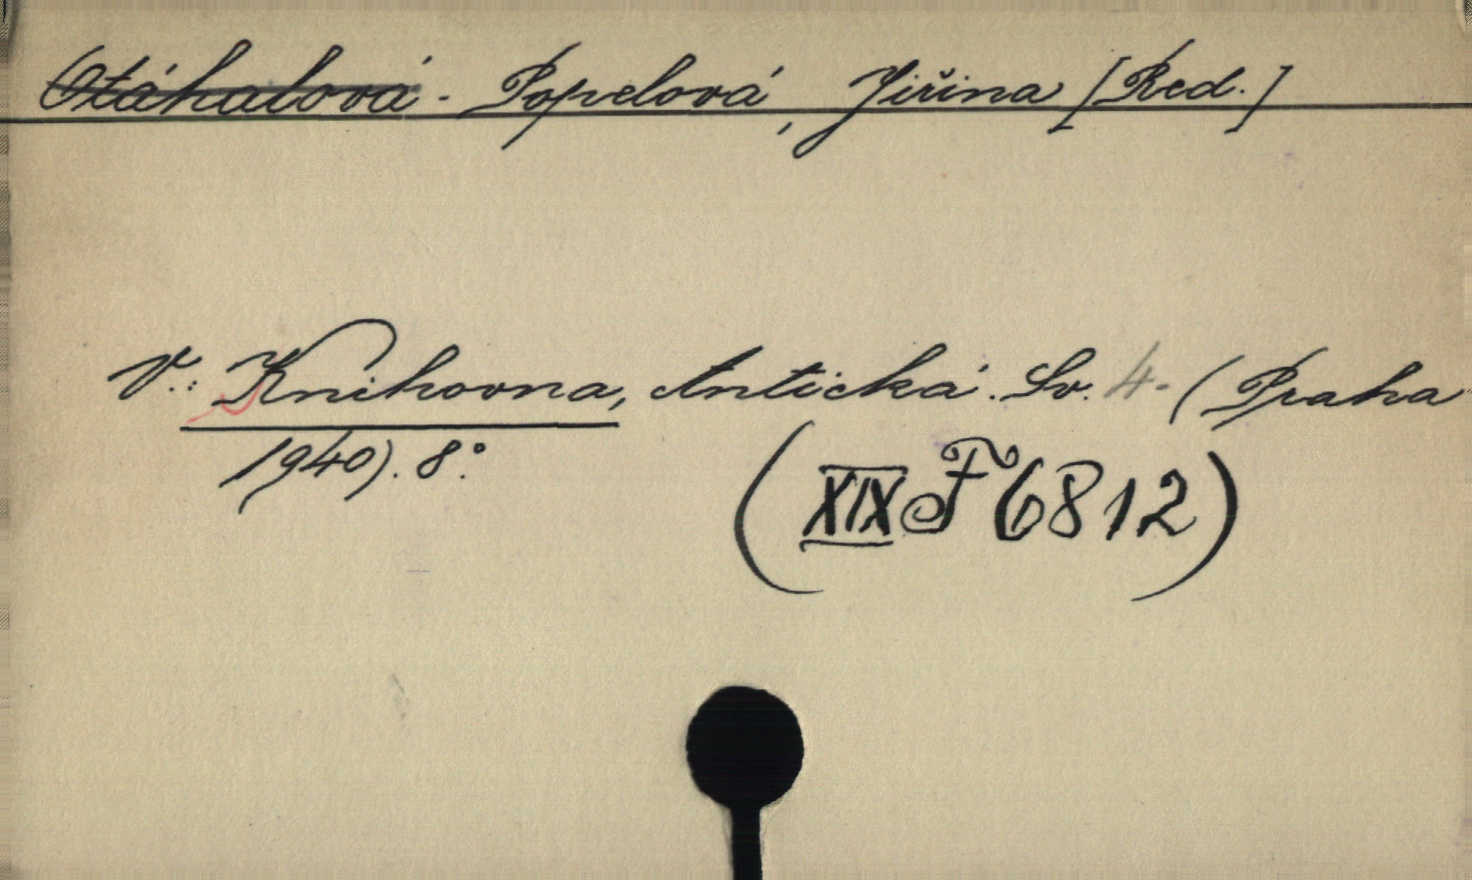 Otáhalová - Popelová, Jiřina [Red.]
V.: Knihovna, Antická. Sv. 4. (Praha
1940). 8°.
(XIX F 6812)